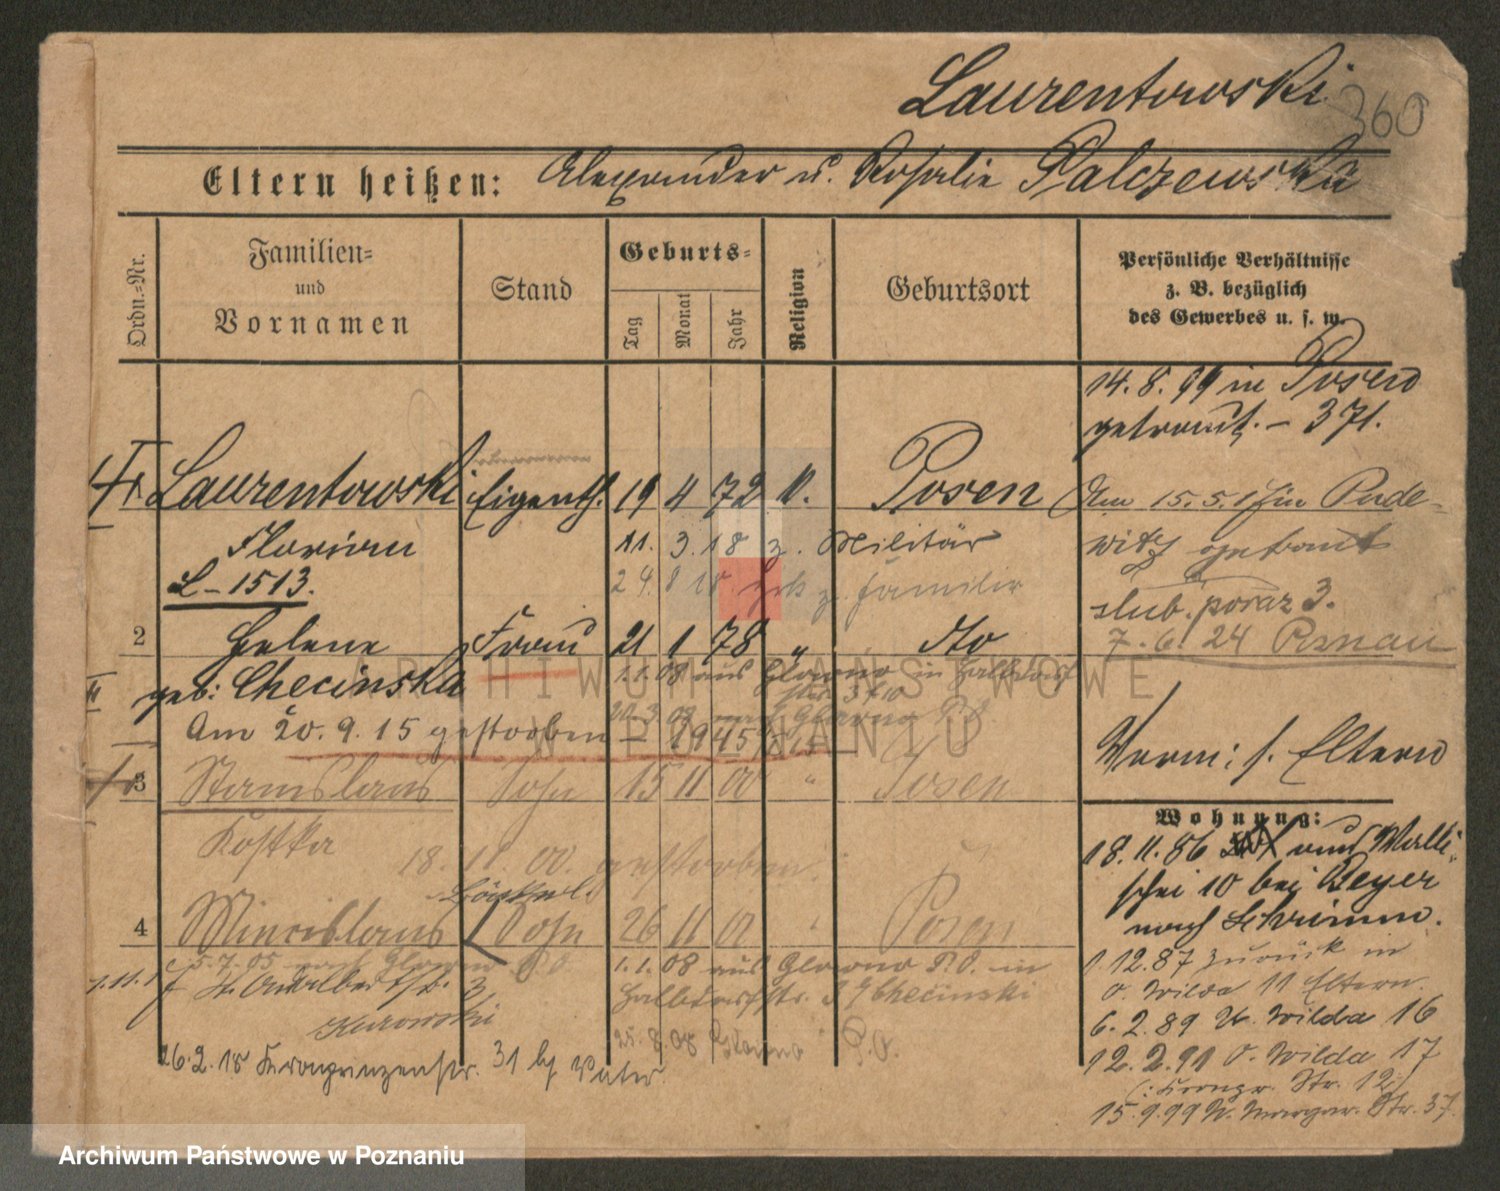 Laurentowski
360
Eltern heißen: Alexander u. Rosalie Palczewska
Ordn.-Nr.
Familien-
und
Vornamen
Stand
Geburts-
Tag
Monat
Jahr
Religion
Geburtsort
Persönliche Verhältnisse
z. B. bezüglich
des Gewerbes u. s. w.
14. 8. 99 in Posen
getraut. - 371.
Laurentowski Eigenth. 19 4 72 k. Posen
Am 15. 5. in Pude-
witz getraut
Florian 11. 3. 18 z. Militär
L-1513. 24. 8 18 z. Familie
slub. poraz 3.
7. 6. 24
2 Helene Frau 21 1 78 " do
geb: Checinska 1. 1. 08 aus Glowno in
Am 20. 9. 15 gestorben - 1945/15
Verm: s. Eltern
3 Stanislaus Sohn 15 11 00 " Posen
Kostka
18. 11. 00. gestorben.
4 Miecislaus Sohn 26 11 " Posen
5. 7. 05 nach Glowno P. O.
1. 1. 08 aus Glowno P. O. in
Halbdorfstr. Checinski
Kurowski
25. 8. 08 Glowno P. O.
26. 2. 18 Kronprinzenstr. 31 Vater
Wohnung:
18. 11. 86 auf Walli-
schei 10 bei Beyer
nach Schrimm.
1. 12. 87 zurück in
O. Wilda 11 Eltern.
6. 2. 89 U. Wilda 16
12. 2. 91 O. Wilda 17
(: Kronpr. Str. 12 :)
15. 9. 99 N. Margar. Str. 37
ARCHIWUM PAŃSTWOWE
W POZNANIU
Archiwum Państwowe w Poznaniu